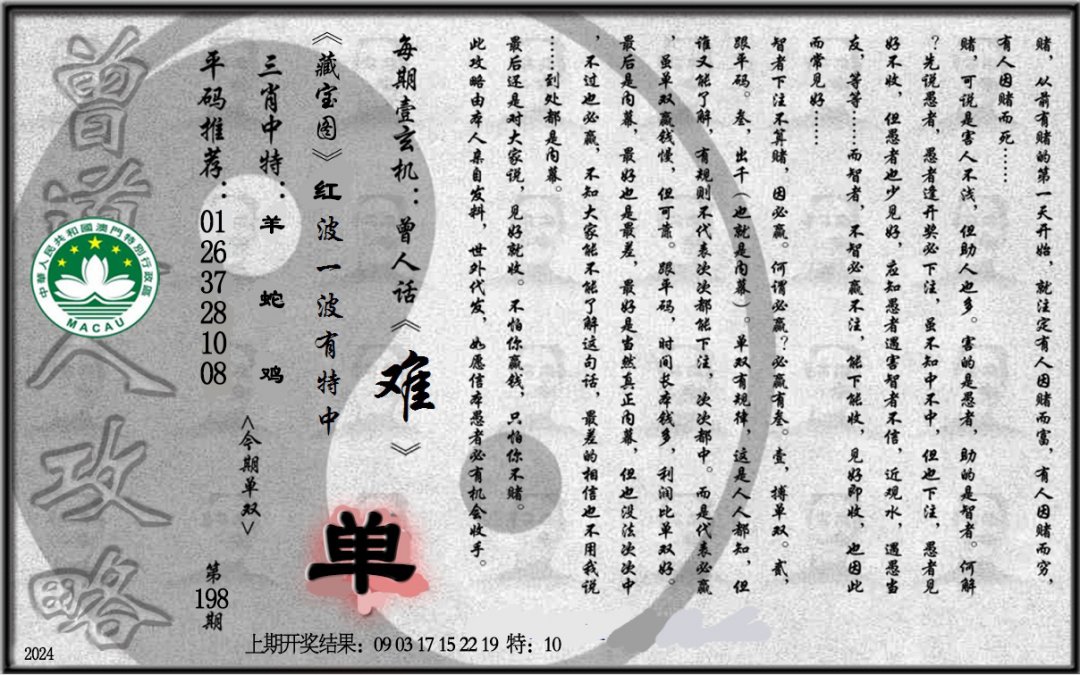 赌，从前有赌的第一天开始，就注定有人因赌而富，有人因赌而穷，
有人因赌而死……
赌，可说是害人不浅，但助人也多。害的是愚者，助的是智者。何解
？先说愚者，愚者逢开奖必下注，虽不知中不中，但也下注，愚者见
好不收，但愚者也少见好，应知愚者遇害智者不信，近观水，遇愚当
友，等等……而智者，不智必赢不注，能下能收，见好即收，也因此
而常见好……
智者下注不算赌，因必赢。何谓必赢？必赢有叁。壹，搏单双。贰，
跟平码。叁，出千（也就是内幕）。单双有规律，这是人人都知，但
谁又能了解，有规则不代表次次都能下注，次次都中。而是代表必赢
，虽单双赢钱慢，但可靠。跟平码，时间长本钱多，利润比单双好。
最后是内幕，最好也是最差，最好是当然真正内幕，但也没法次次中
，不过也必赢，不知大家能不能了解这句话，最差的相信也不用我说
……到处都是内幕。
最后还是对大家说，见好就收。不怕你赢钱，只怕你不赌。
此攻略由本人亲自发料，世外代发，如愿信本愚者必有机会收手。
每期壹玄机：曾人话《难》
《藏宝图》红波一波有特中
三肖中特：羊 蛇 鸡
平码推荐：01 26 37 28 10 08
<今期单双>
单
第198期
曾道人攻略
中華人民共和國澳門特別行政區
MACAU
上期开奖结果：09 03 17 15 22 19 特：10
2024